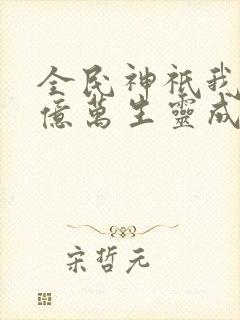 全民神祇我
億萬生靈成
宋哲元